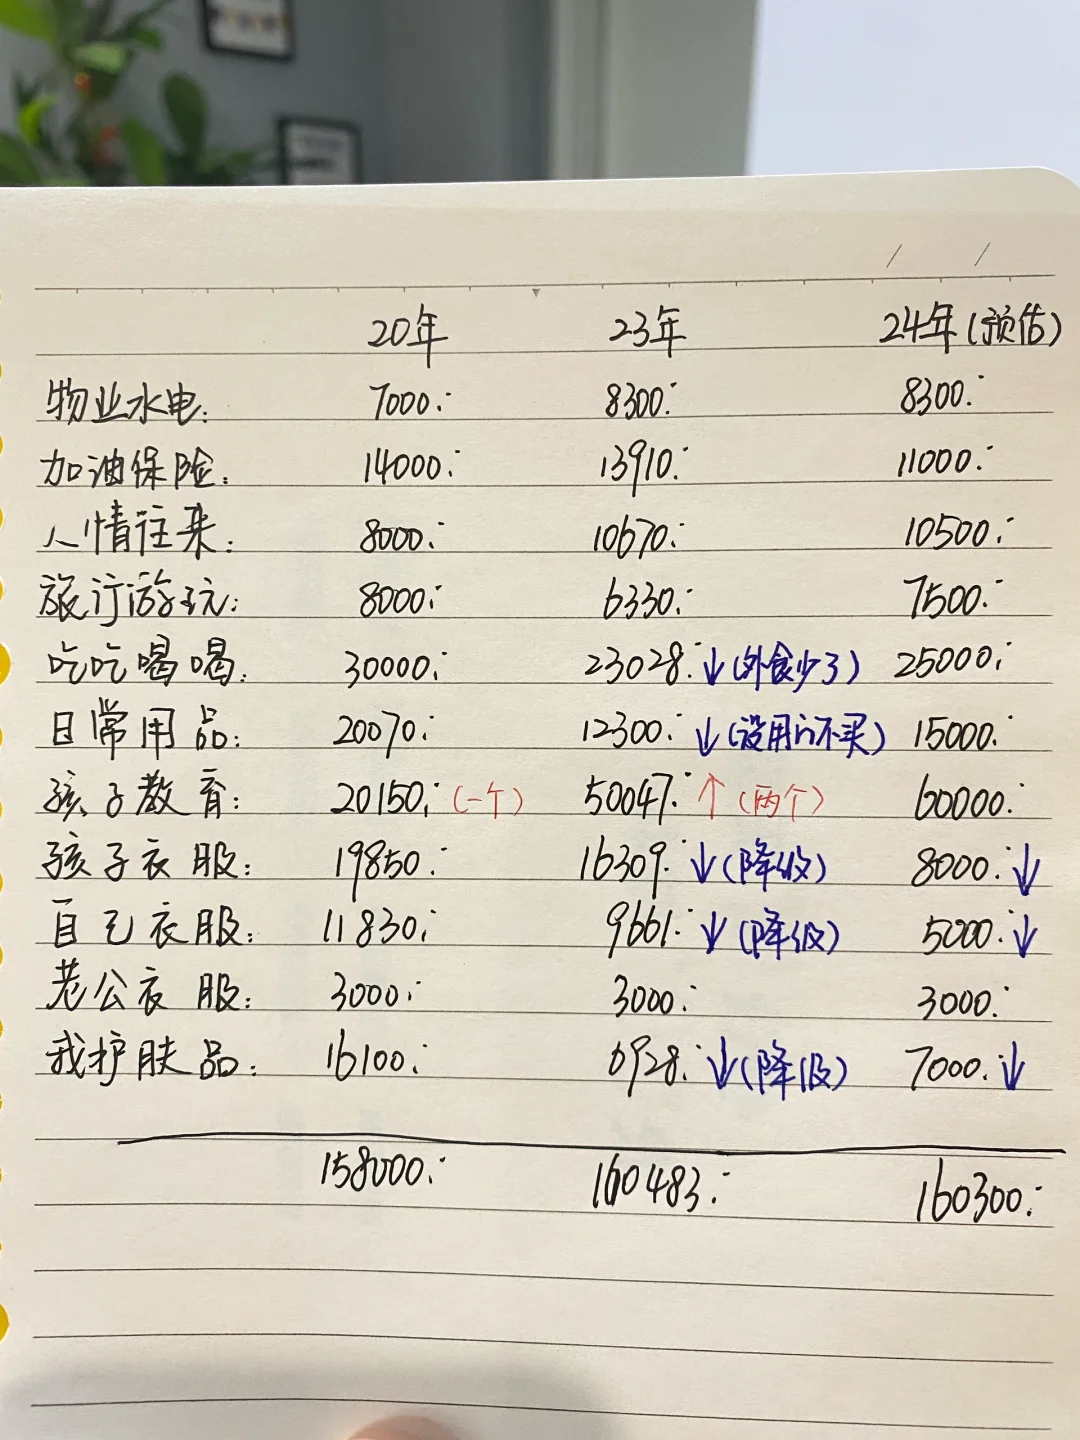 20年 23年 24年(预估)
物业水电: 7000.- 8300.- 8300.-
加油保险: 14000.- 13910.- 11000.-
人情往来: 8000.- 10670.- 10500.-
旅行游玩: 8000.- 6330.- 7500.-
吃吃喝喝: 30000.- 23028.- ↓(外食少了) 25000.-
日常用品: 20070.- 12300.- ↓(没用的不买) 15000.-
孩子教育: 20150.- (一个) 50047.- ↑(两个) 60000.-
孩子衣服: 19850.- 16309.- ↓(降级) 8000.- ↓
自己衣服: 11830.- 9661.- ↓(降级) 5000.- ↓
老公衣服: 3000.- 3000.- 3000.-
我护肤品: 16100.- 6928.- ↓(降级) 7000.- ↓
158000.- 160483.- 160300.-